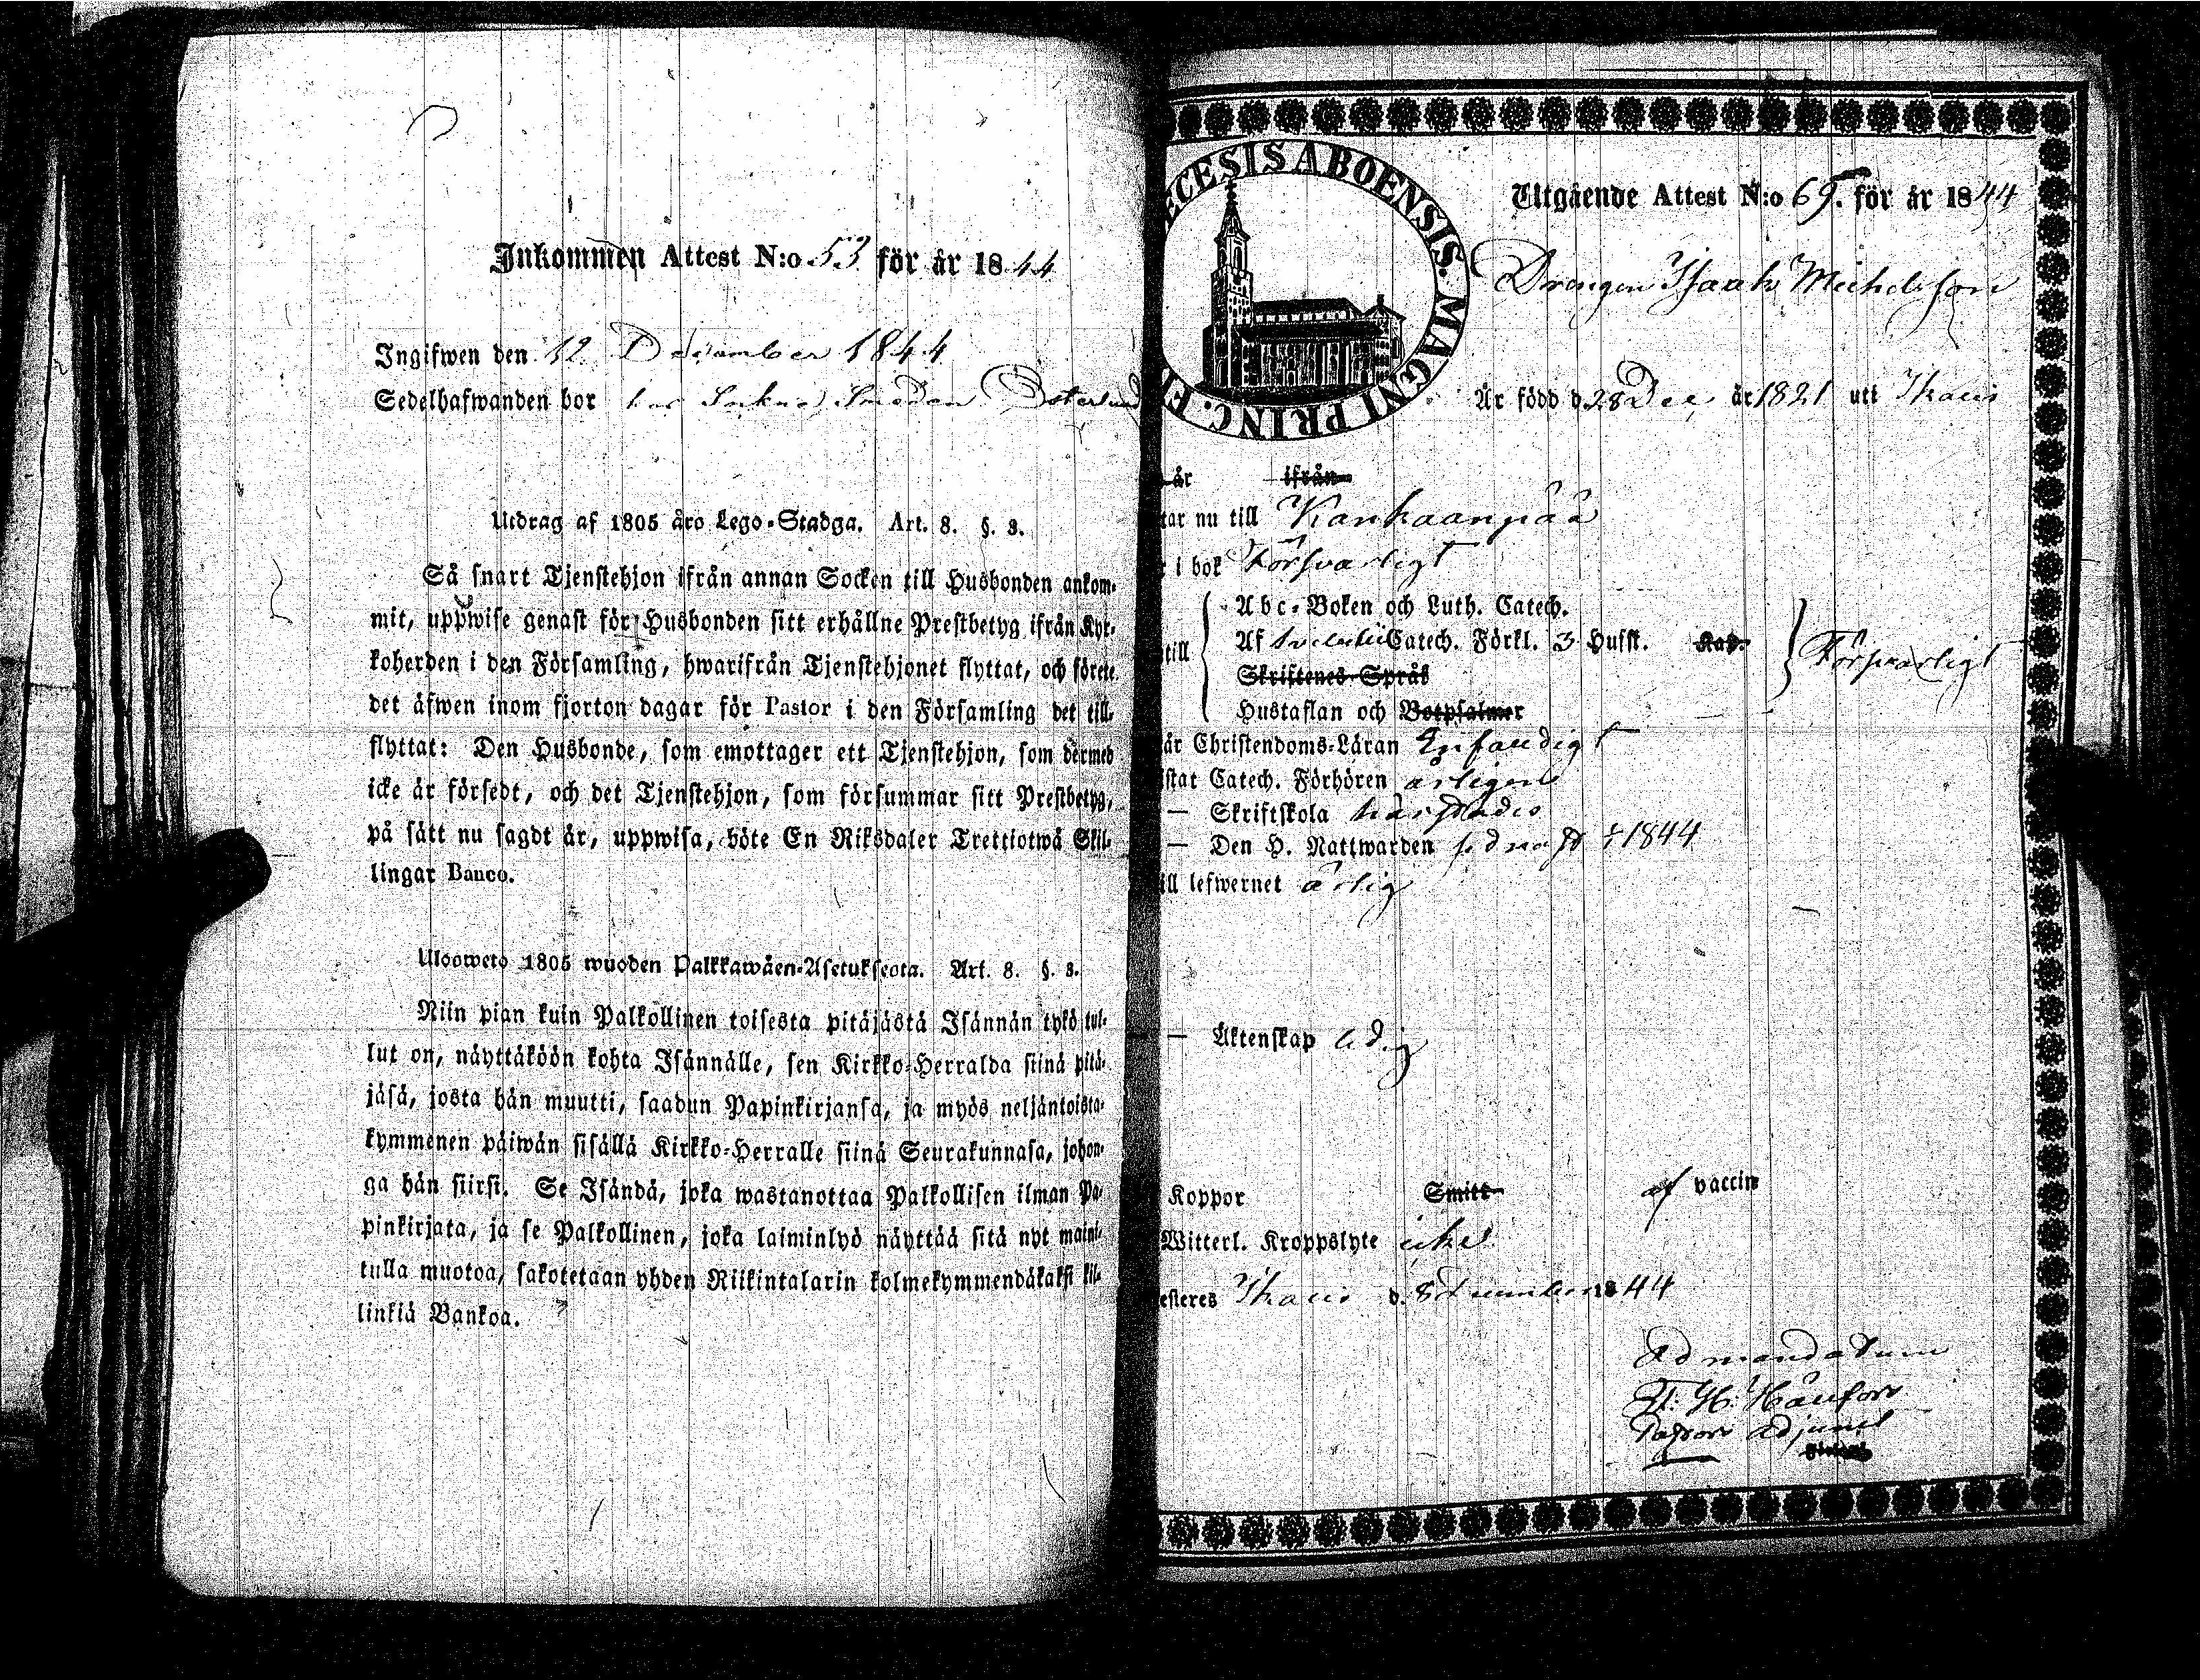 Inkommen Attest N:o 53 för år 1844
Ingifwen den 12 December 1844
Sedelhafwanden bor hos Smeden Österlund
Utdrag af 1805 åro Lego-Stadga. Art. 8. §. 8.
Så snart Tjenstehjon ifrån annan Socken till Husbonden ankom-
mit, uppwise genast för Husbonden sitt erhållne Prestbetyg ifrån Kyr-
koherden i den Församling, hwarifrån Tjenstehjonet flyttat, och förete
det äfwen inom fjorton dagar för Pastor i den Församling det till-
flyttat: Den Husbonde, som emottager ett Tjenstehjon, som dermed
icke är försedt, och det Tjenstehjon, som försummar sitt Prestbetyg,
på sätt nu sagdt är, uppwisa, böte En Riksdaler Trettiotwå Skil-
lingar Banco.
Ulooweto 1805 wuoden Palkkawäen-Asetukseota. Art. 8. §. 8.
Niin pian kuin Palkollinen toisesta pitäjästä Isännän tykö tul-
lut on, näyttäköön kohta Isännälle, sen Kirkko-Herralda siinä pitä-
jäsä, josta hän muutti, saadun Papinkirjansa, ja myös neljäntoista-
kymmenen päiwän sisällä Kirkko-Herralle siinä Seurakunnasa, johon-
ga hän siirsi. Se Isändä, joka wastanottaa Palkollisen ilman Pa-
pinkirjata, ja se Palkollinen, joka laiminlyö näyttää sitä nyt maini-
tulla muotoa, sakotetaan yhden Riikintalarin kolmekymmendäkaksi kil-
linkiä Bankoa.
ECESIS ABOENSIS. MAGNI PRINC. FI
Utgående Attest N:o 69. för år 1844
Drengen Isaak Michelsson
Är född d. 28 Dec. år 1821 uti Ikalis
år ifrån
tar nu till Kankaanpää
i bok Försvarligt
Abc-Boken och Luth. Catech.
till Af Svebelii Catech. Förkl. 3 Hufst. Kap. Försvarligt
Skriftenes Språk
Hustaflan och Botpsalmer
är Christendoms-Läran Enfaldigt
istat Catech. Förhören årligen
— Skriftskola härstädes
— Den H. Nattwarden 1844
ill lefwernet ärlig
— Äktenskap ledig
Koppor Smitt af vaccin
Witterl. Kroppslyte icke
esteres Ikalis d. 8 December 1844
Ad mandatum
Pastors Adjunct